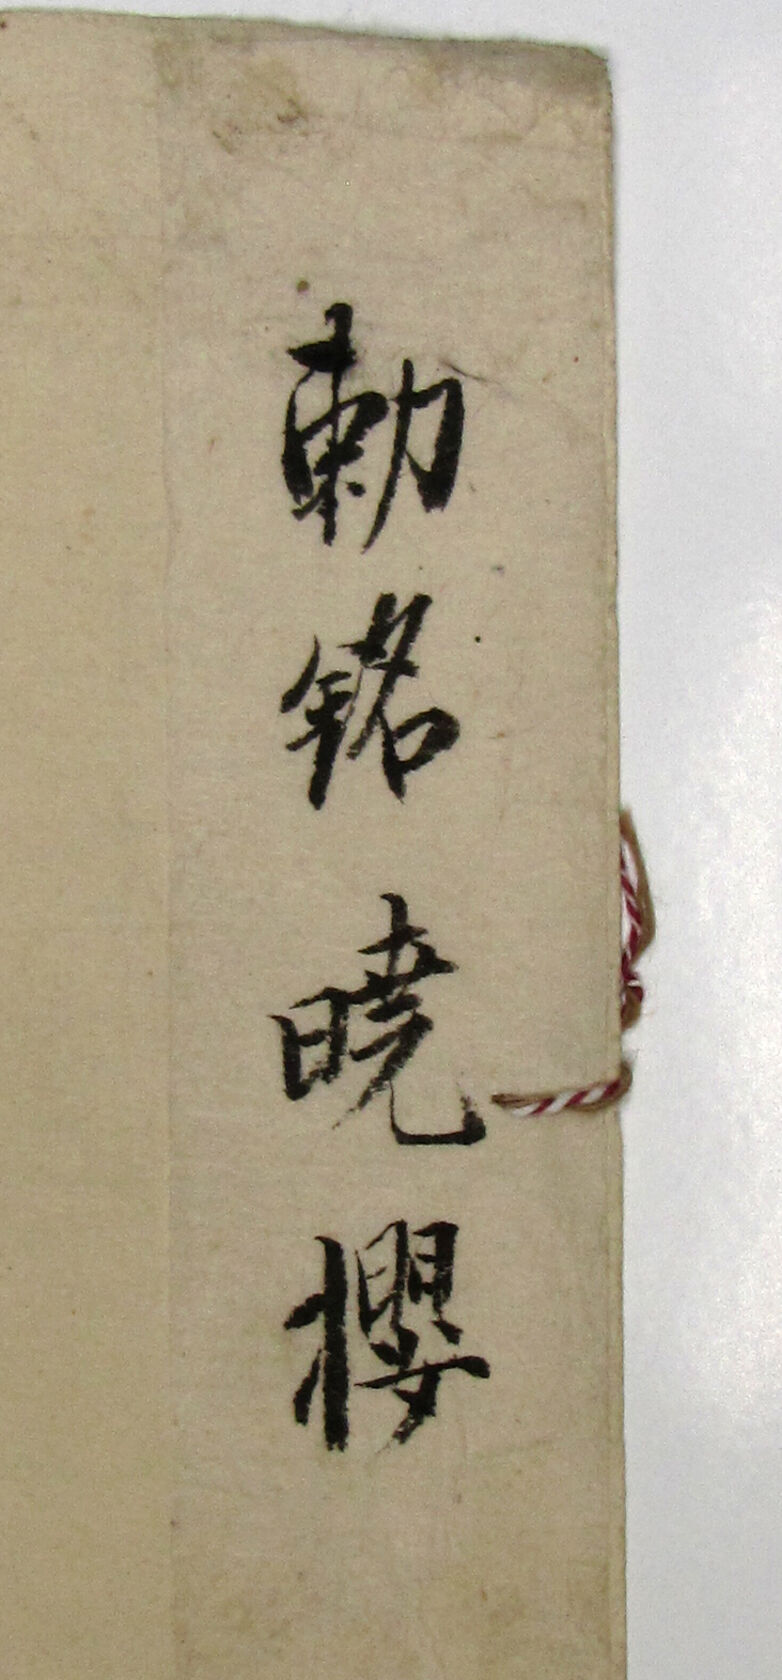 勅銘暁櫻